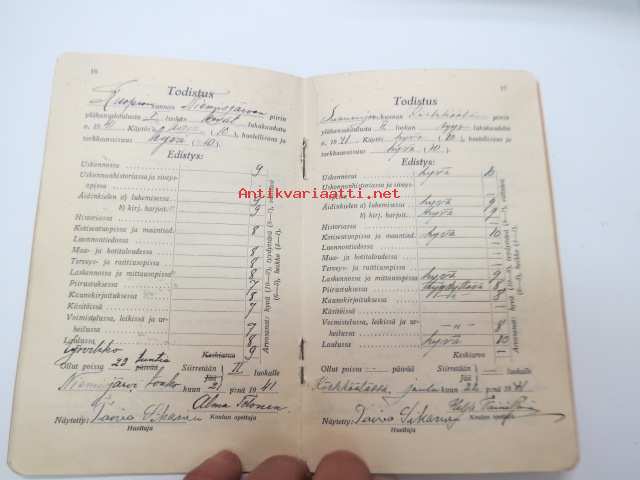 16
Todistus
Kuopion kunnan Niemisjärven piirin
yläkansakoulusta luokan lukukaudelta
v. 1941. Käytös hyvä (10), huolellisuus ja
tarkkaavaisuus hyvä (10).
Edistys:
Uskonnossa 9
Uskonnonhistoriassa ja siveys-
opissa
Äidinkielen a) lukemisessa 9
b) kirj. harjoit. 9
Historiassa
Kotiseutuopissa ja maantied. 8
Luonnontiedossa
Maa- ja kotitaloudessa 8
Terveys- ja raittiusopissa 8
Laskennossa ja mittausopissa
Piirustuksessa 7
Kaunokirjoituksessa 8
Käsitöissä 7
Voimistelussa, leikissä ja ur-
heilussa 7
Laulussa 8
Keskiarvo 9
Ollut poissa 23 tuntia päivää Siirretään II luokalle
Jää
Niemisjärvi kuun p:nä 1941
Näytetty: Alma Koulun opettaja
Huoltaja
Arvosanat: hyvä (10—9), tyydyttävä (8—7), välttävä
(6—5), heikko (4—).
Antikvariaatti.net
17
Todistus
kunnan piirin
yläkansakoulusta II luokan lukukaudelta
v. 1941. Käytös hyvä (10), huolellisuus ja
tarkkaavaisuus hyvä (10).
Edistys:
Uskonnossa hyvä 10
Uskonnonhistoriassa ja siveys-
opissa
Äidinkielen a) lukemisessa hyvä 9
b) kirj. harjoit. hyvä 9
Historiassa
Kotiseutuopissa ja maantied. hyvä 10
Luonnontiedossa
Maa- ja kotitaloudessa
Terveys- ja raittiusopissa
Laskennossa ja mittausopissa hyvä 9
Piirustuksessa tyydyttävä 8
Kaunokirjoituksessa —"—
Käsitöissä
Voimistelussa, leikissä ja ur-
heilussa —"— 8
Laulussa hyvä 10
Keskiarvo
Ollut poissa — päivää Siirretään — luokalle
Jää
joulu kuun p:nä 1941
Näytetty: Koulun opettaja
Huoltaja
Arvosanat: hyvä (10—9), tyydyttävä (8—7), välttävä
(6—5), heikko (4—).